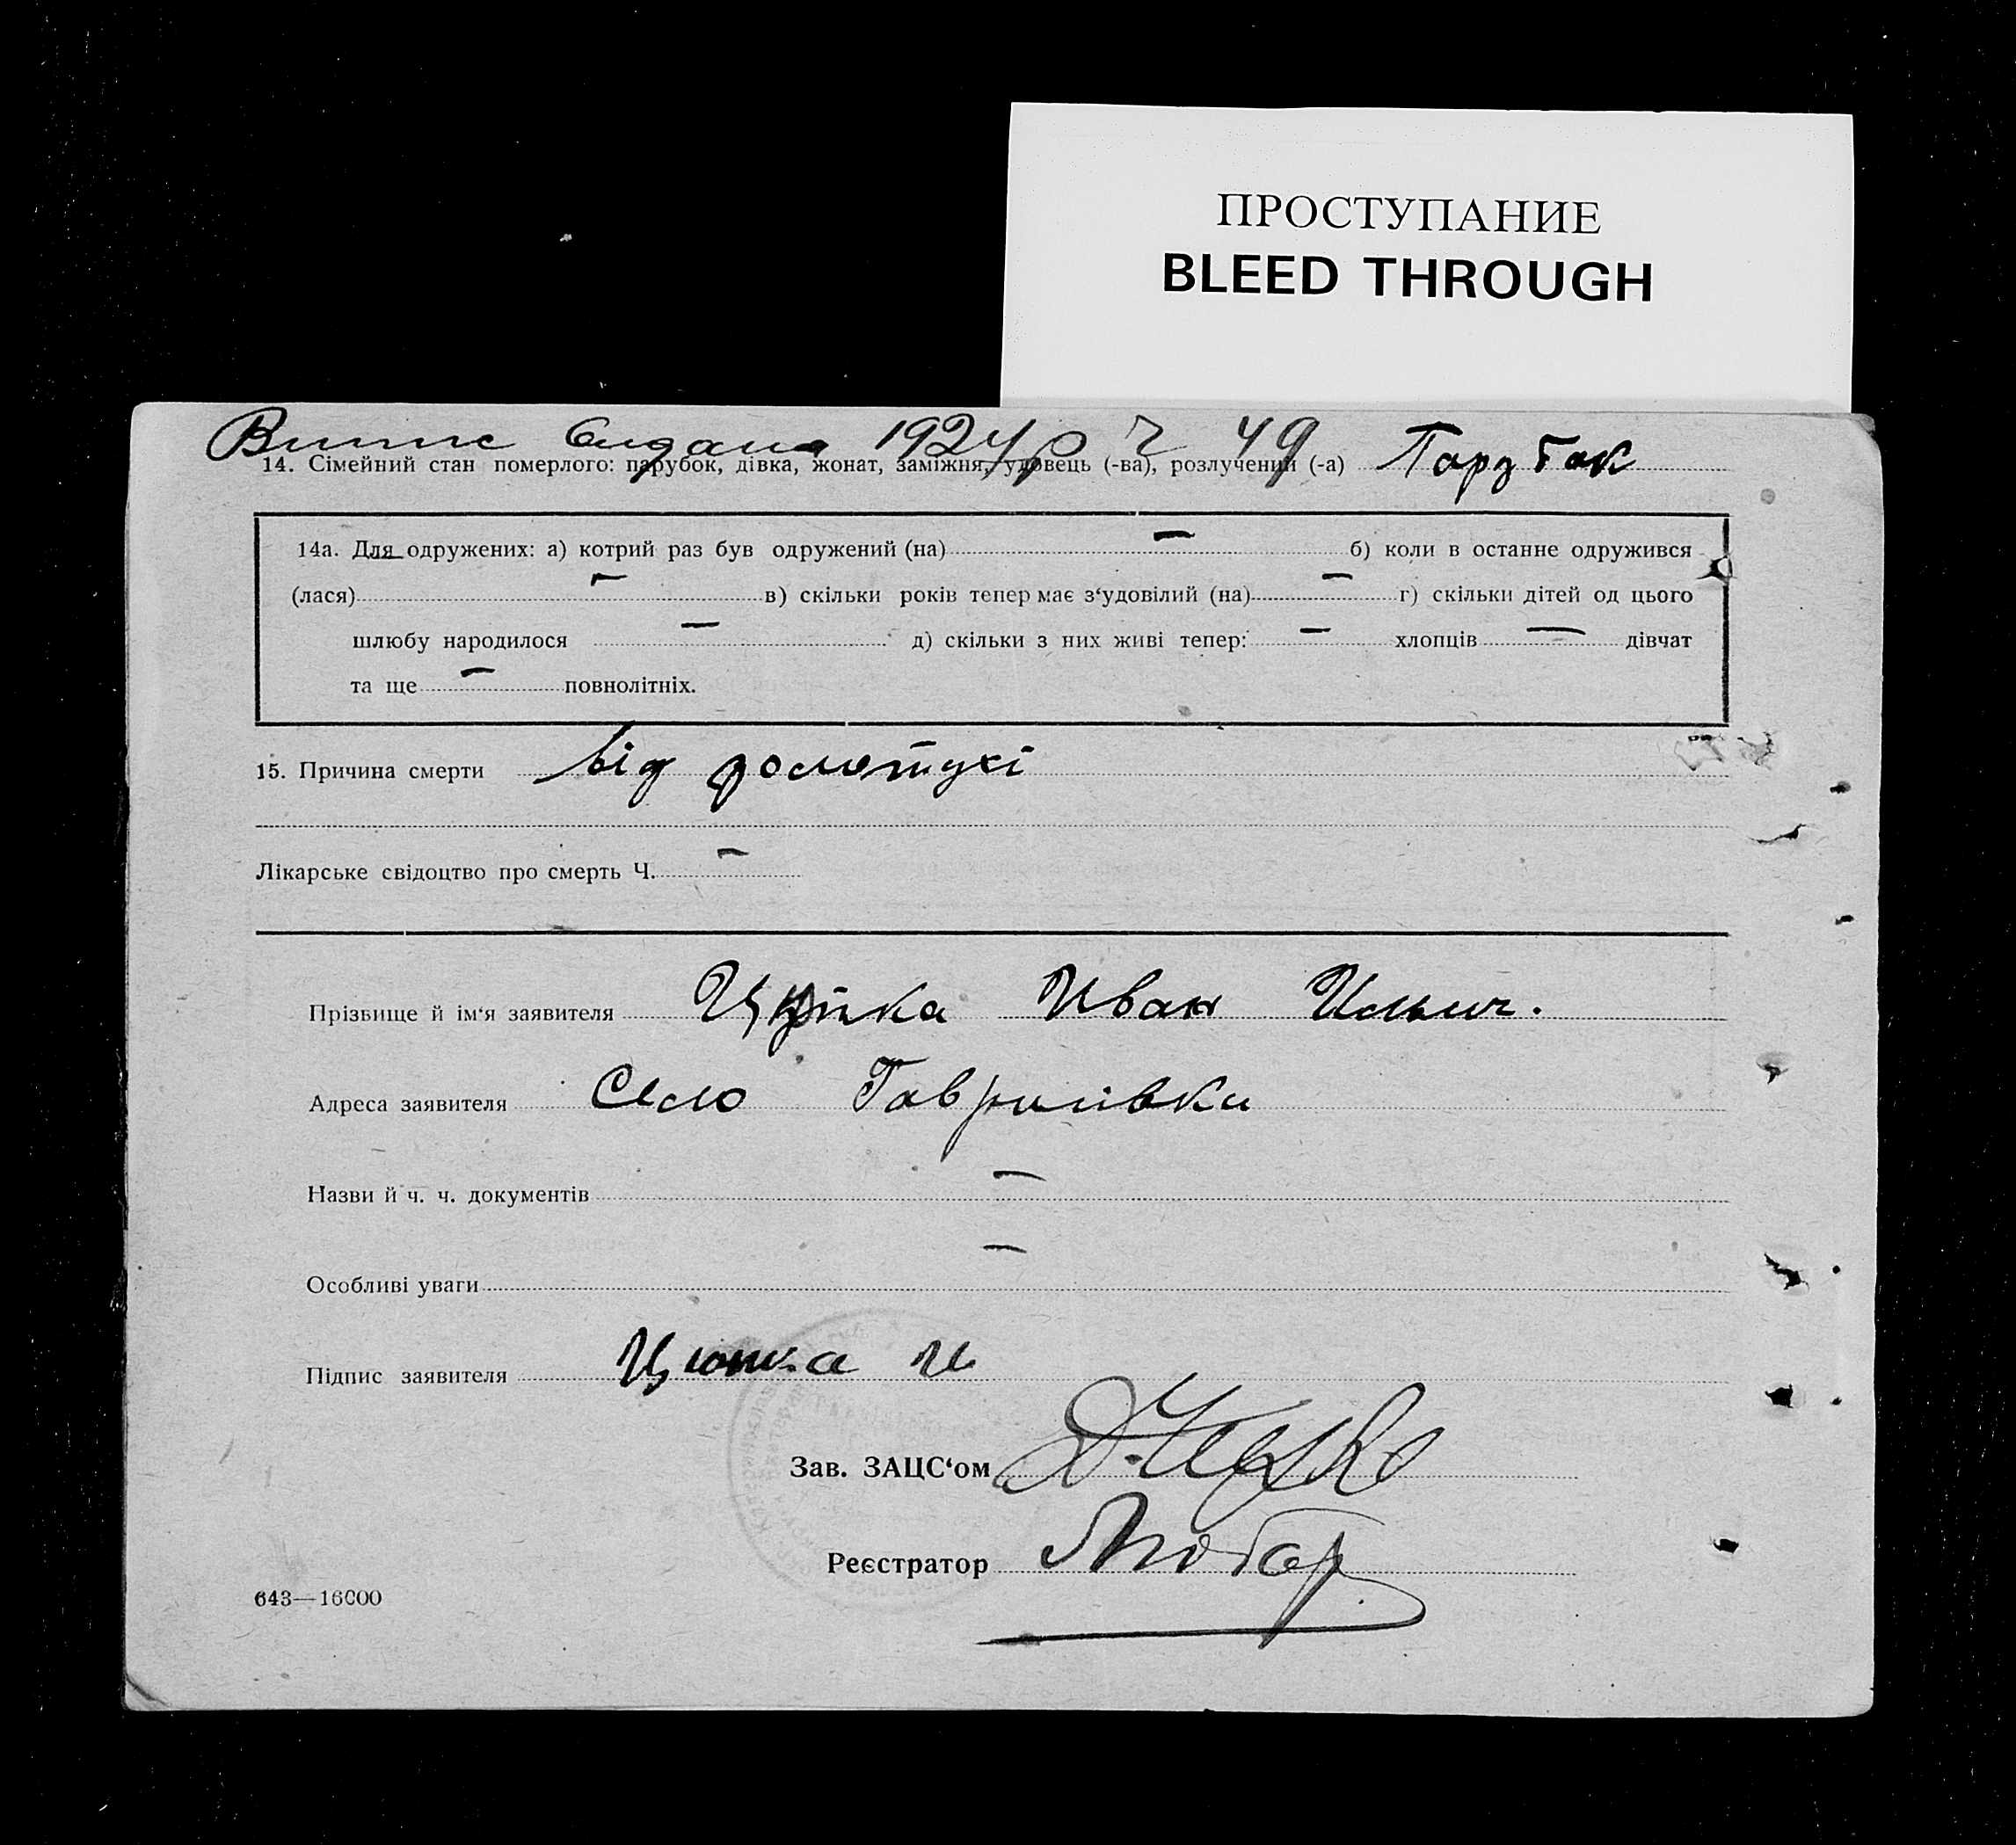 ПРОСТУПАНИЕ
BLEED THROUGH
Випис видана 1924 р Ч 49
14. Сімейний стан померлого: парубок, дівка, жонат, заміжня, удовець (-ва), розлучений (-а) Парубок
14а. Для одружених: а) котрий раз був одружений (на) — б) коли в останне одружився
(лася) — в) скільки років тепер має з‘удовілий (на) — г) скільки дітей од цього
шлюбу народилося — д) скільки з них живі тепер: — хлопців — дівчат
та ще — повнолітніх.
15. Причина смерти від
Лікарське свідоцтво про смерть Ч. —
Прізвище й ім‘я заявителя Иван Ильич.
Адреса заявителя Село Гаврилівка
Назви й ч. ч. документів —
Особливі уваги —
Підпис заявителя Цюпка И
Зав. ЗАЦС‘ом
Реєстратор
643—16000